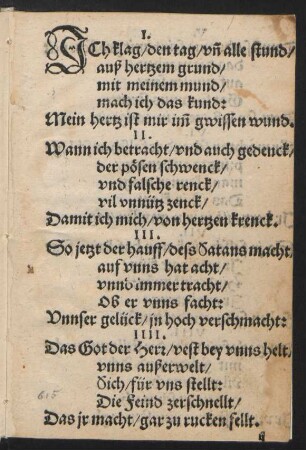 I.
ICh klag/den tag/vñ alle stund/
auß hertzem grund/
mit meinem mund/
mach ich das kund:
Mein hertz ist mir im̃ gwissen wund.
II.
Wann ich betracht/vnd auch gedenck/
der pösen schwenck/
vnd falsche renck/
vil vnnütz zenck/
Damit ich mich/von hertzen krenck.
III.
So jetzt der hauff/dess Satans macht/
auf vnns hat acht/
vnnd immer tracht/
Ob er vnns facht:
Vnnser gelück/jn hoch verschmacht:
IIII.
Das Got der Herr/vest bey vnns helt/
vnns außerwelt/
Sich/für vns stellt:
Die Feind zerschnellt/
Das jr macht/gar zu rucken fellt.
615